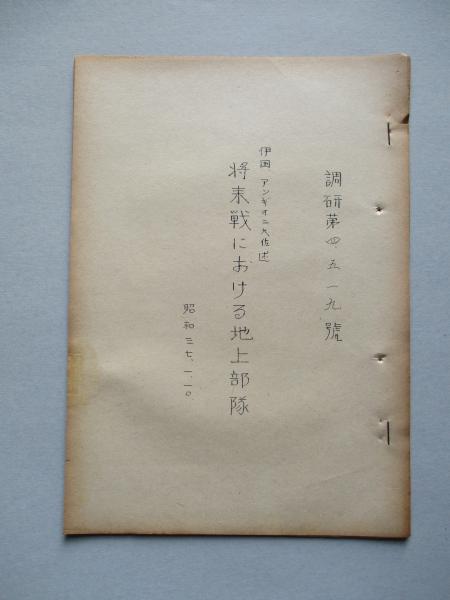 調研第四五一九號
伊国 アンギオニ大佐述
将来戦における地上部隊
昭和三七、一、一〇